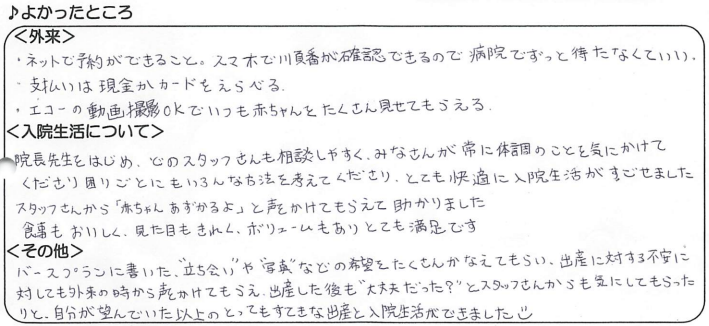 ♪よかったところ
<外来>
・ネットで予約ができること。スマホで順番が確認できるので病院でずっと待たなくていい。
・支払いは現金かカードをえらべる。
・エコーの動画撮影OKでいつも赤ちゃんをたくさん見せてもらえる。
<入院生活について>
院長先生をはじめ、どのスタッフさんも相談しやすく、みなさんが常に体調のことを気にかけて
くださり困りごとにもいろんな方法を考えてくださり、とても快適に入院生活がすごせました
スタッフさんから「赤ちゃんあずかるよ」と声をかけてもらえて助かりました
食事もおいしく、見た目もきれく、ボリュームもありとても満足です
<その他>
バースプランに書いた、"立ち会い"や"写真"などの希望をたくさんかなえてもらい、出産に対する不安に
対しても外来の時から声をかけてもらえ、出産した後も"大丈夫だった？"とスタッフさんからも気にしてもらった
りと、自分が望んでいた以上のとってもすてきな出産と入院生活ができました